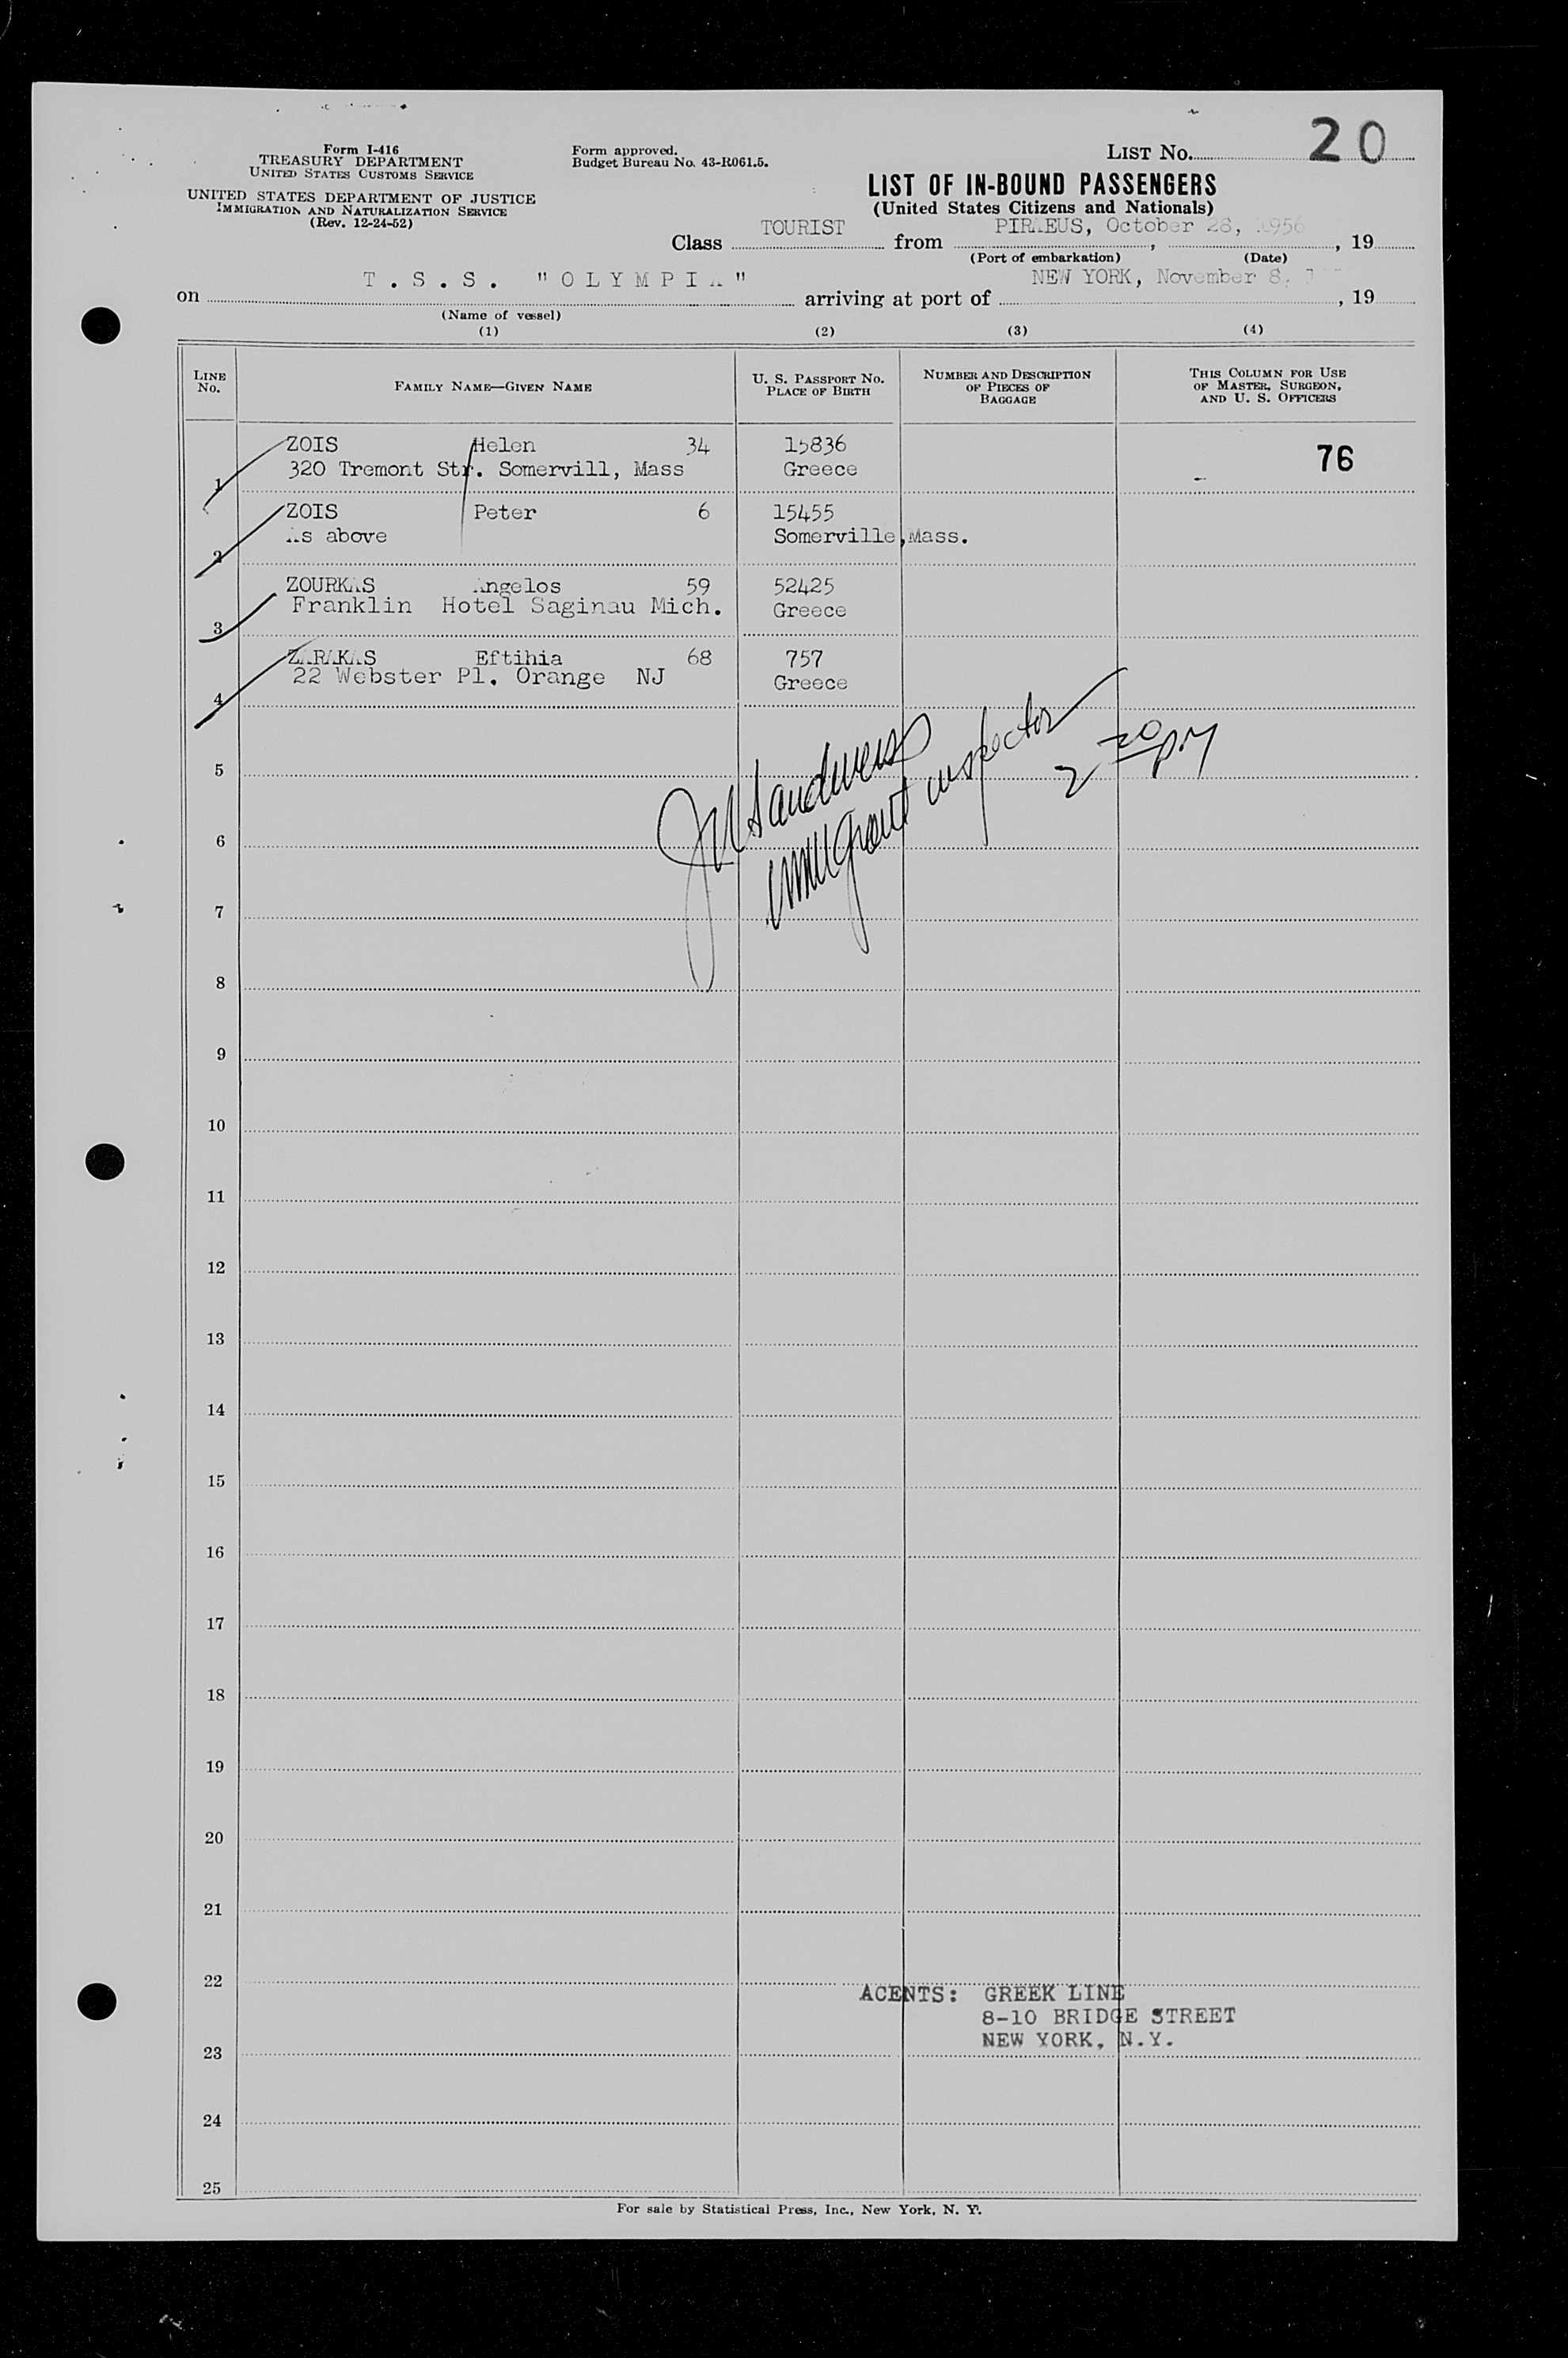 Form I-416
TREASURY DEPARTMENT
UNITED STATES CUSTOMS SERVICE
UNITED STATES DEPARTMENT OF JUSTICE
IMMIGRATION AND NATURALIZATION SERVICE
(Rev. 12-24-52)
Form approved.
Budget Bureau No. 43-R061.5.
LIST No. 20
LIST OF IN-BOUND PASSENGERS
(United States Citizens and Nationals)
Class TOURIST from PIRAEUS, October 28, 1956, 19
(Port of embarkation) (Date)
on T.S.S. "OLYMPIA" arriving at port of NEW YORK, November 8, , 19
(Name of vessel)
(1) (2) (3) (4)
LINE No. FAMILY NAME—GIVEN NAME U. S. PASSPORT No. PLACE OF BIRTH NUMBER AND DESCRIPTION OF PIECES OF BAGGAGE THIS COLUMN FOR USE OF MASTER, SURGEON, AND U. S. OFFICERS
ZOIS Helen 34 15836 76
1 320 Tremont Str. Somervill, Mass Greece
ZOIS Peter 6 15455
2 As above Somerville, Mass.
ZOURKAS Angelos 59 52425
3 Franklin Hotel Saginau Mich. Greece
ZARAKAS Eftihia 68 757
4 22 Webster Pl. Orange NJ Greece
immigrant inspector
5
6
7
8
9
10
11
12
13
14
15
16
17
18
19
20
21
22
ACENTS: GREEK LINE
8-10 BRIDGE STREET
NEW YORK, N.Y.
23
24
25
For sale by Statistical Press, Inc., New York, N. Y.